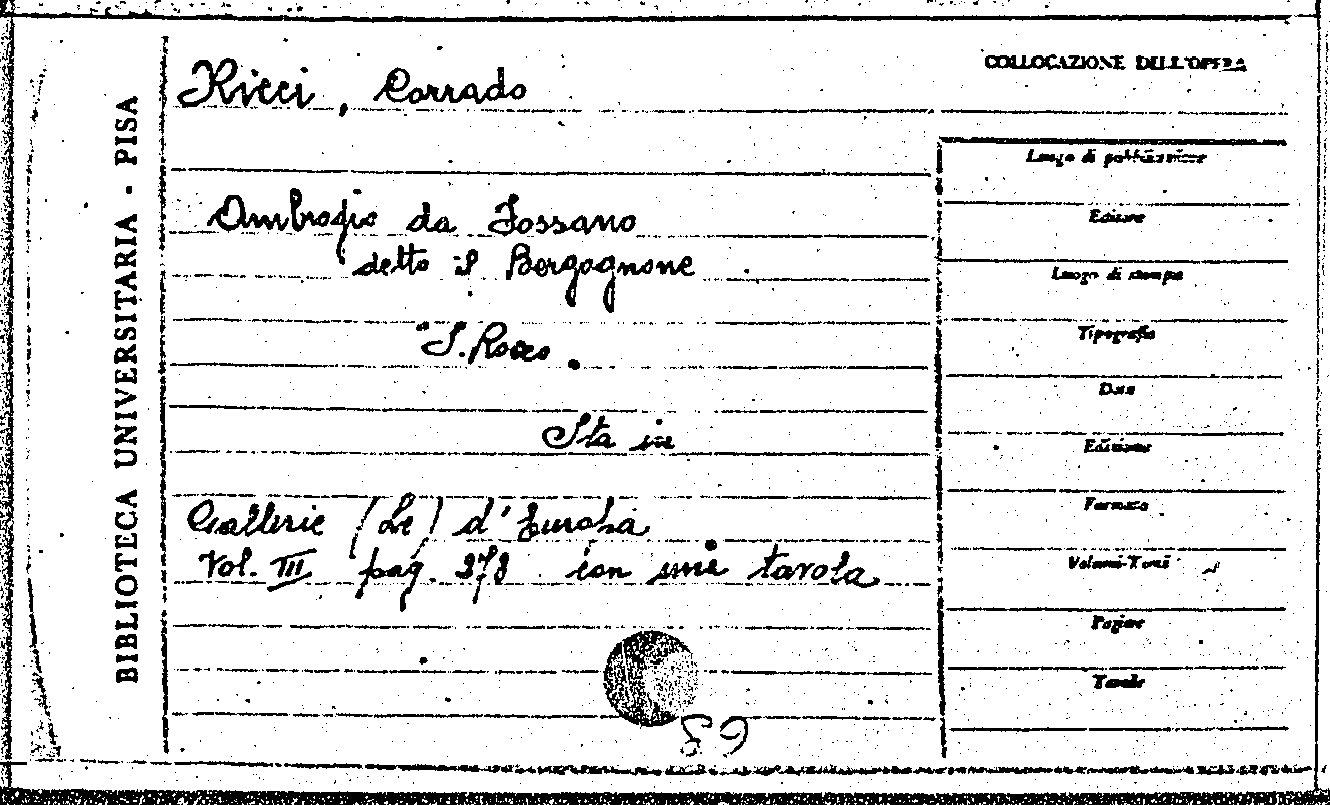 BIBLIOTECA UNIVERSITARIA - PISA
Ricci, Corrado
Ambrogio da Fossano
detto il Bergognone
"S. Rocco.
Sta in
Gallerie (Le) d'Europa
Vol. III pag. 278 con una tavola
COLLOCAZIONE DELL'OPERA
Luogo di pubblicazione
Editore
Luogo di stampa
Tipografia
Data
Edizione
Formato
Volumi-Tomi
Pagine
Tavole